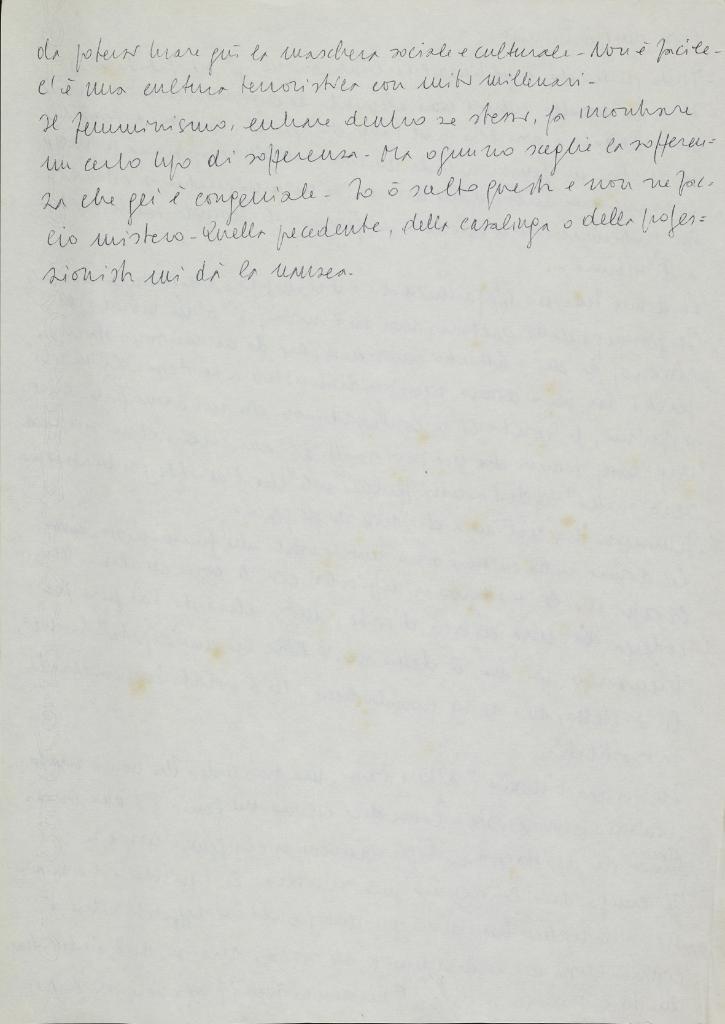 da potersi tirare giù la maschera sociale e culturale - Non è facile -
C'è una cultura terroristica con miti millenari -
Il femminismo, entrare dentro se stessi, fa incontrare
un certo tipo di sofferenza - Ma ognuno sceglie la sofferen=
za che gli è congeniale - Io ò scelto questa e non ne fac=
cio mistero - Quella precedente, della casalinga o della profes=
sionista mi dà la nausea.